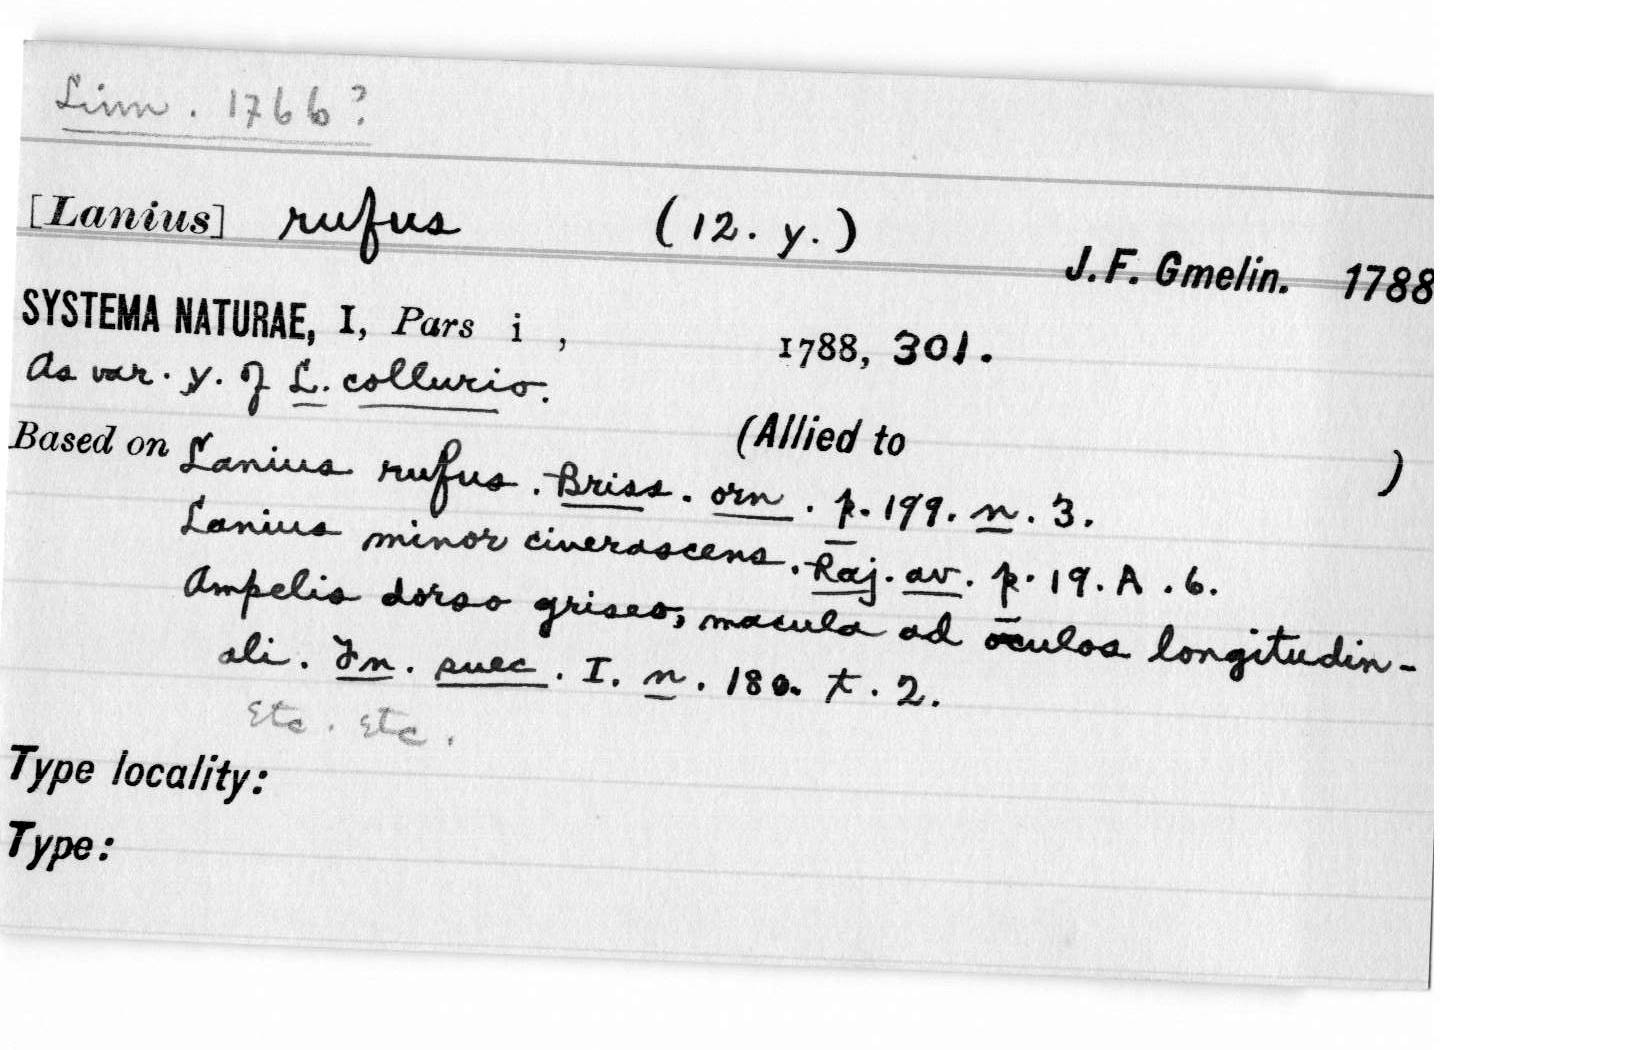 Linn. 1766?
[Lanius] rufus (12. y.)
J. F. Gmelin. 1788
SYSTEMA NATURAE, I, Pars i, 1788, 301.
As var. y. of L. collurio.
(Allied to )
Based on Lanius rufus. Briss. orn. p. 199. n. 3.
Lanius minor cinerascens. Raj. av. p. 19. A. 6.
Ampelis dorso griseo, macula ad oculos longitudin-
ali. Fn. suec. I. n. 180. t. 2.
Etc. Etc.
Type locality:
Type: